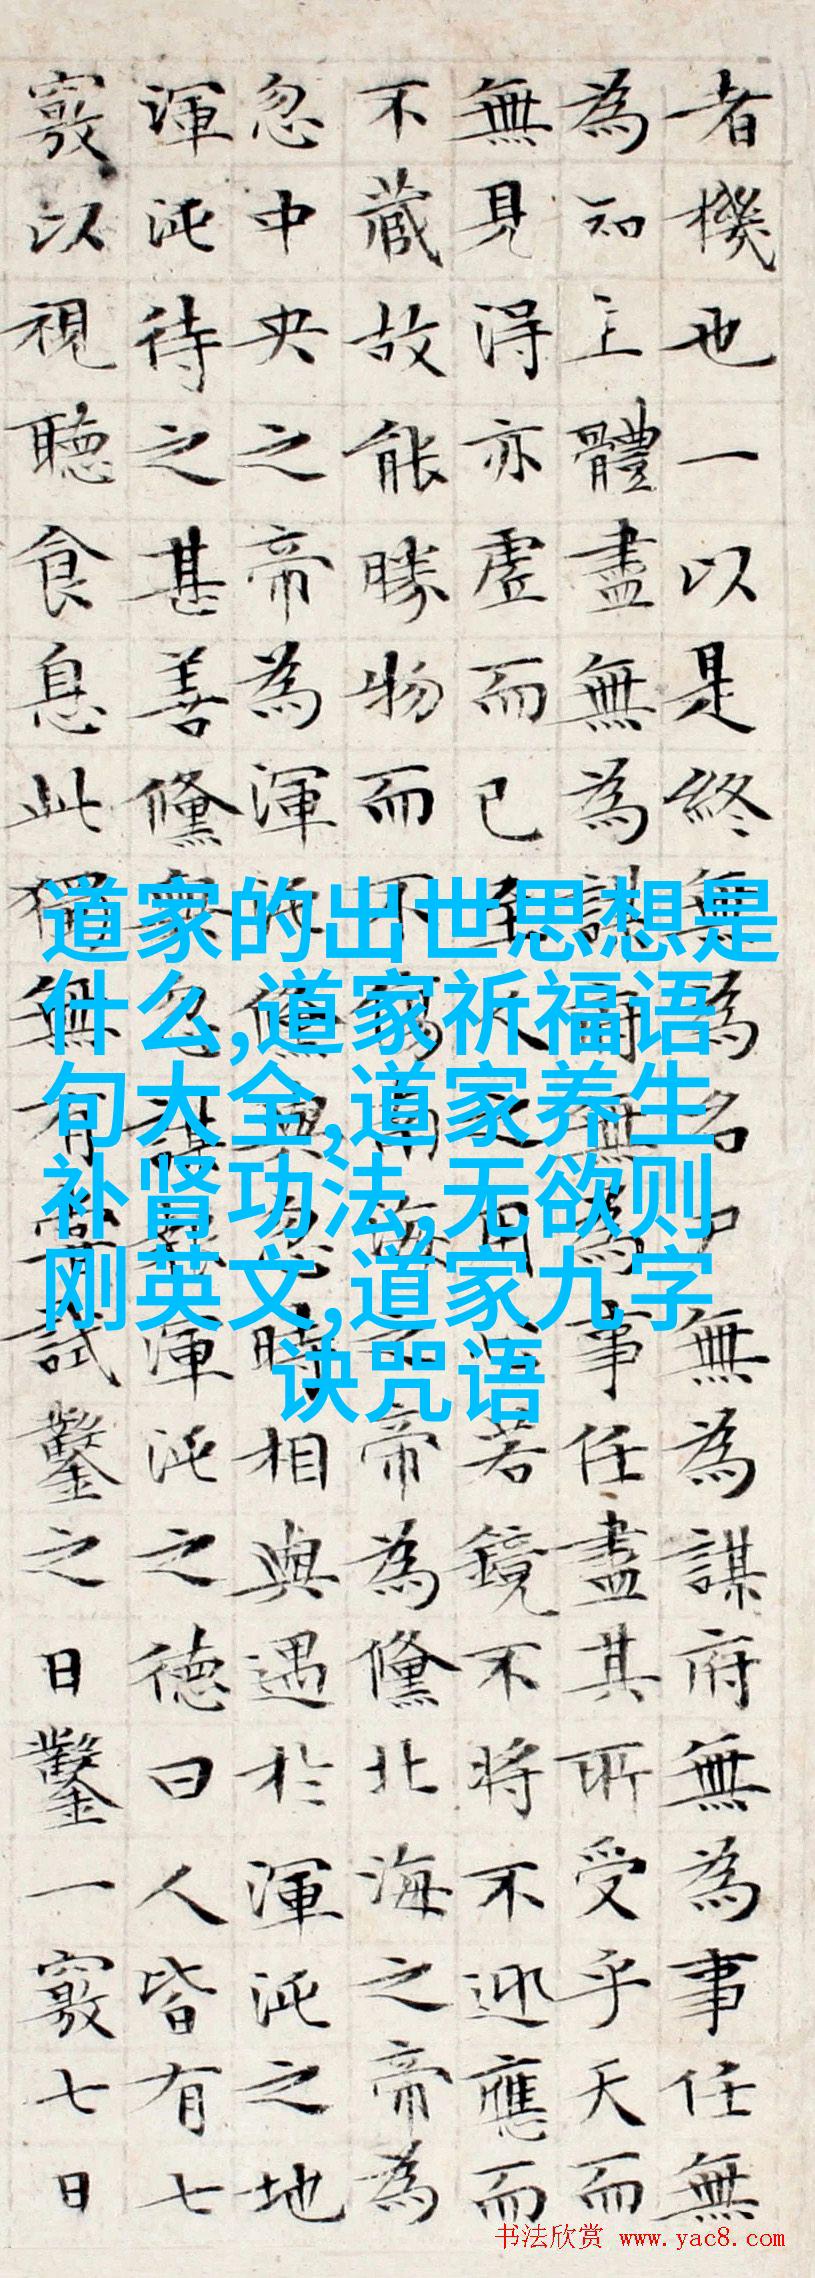 者機也一以是終無為名尸無為謀府無為事任無
為知主體盡無為謀府無為事任盡其所受乎天而
無見得亦虛而已至人之用心若鏡不將不迎應而
不藏故能勝物而不傷南海之帝為儵北海之帝為
忽中央之帝為渾沌儵與忽時相與遇於渾沌之地
渾沌待之甚善儵與忽謀報渾沌之德曰人皆有七
竅以視聽食息此獨無有嘗試鑿之日鑿一竅七日
道家的出世思想是
什么,道家祈福语
句大全,道家养生
补肾功法,无欲则
刚英文,道家九字
诀咒语
书法欣赏 www.yac8.com